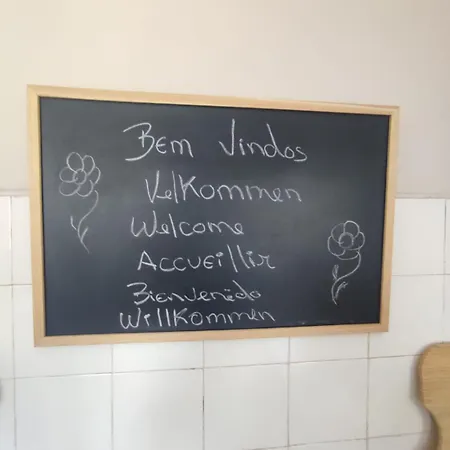 Bem Vindos
Velkommen
Welcome
Accueillir
Bienvenido
Willkommen